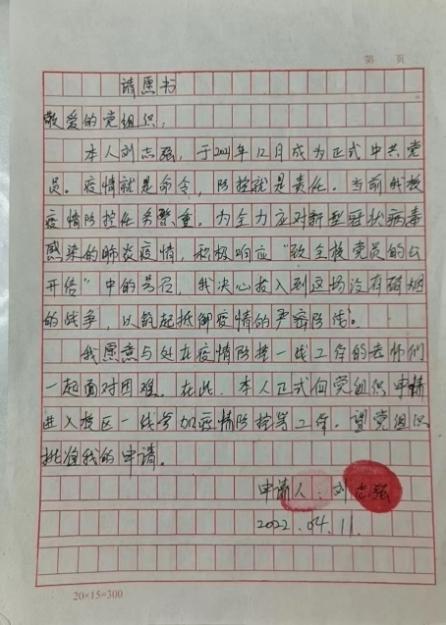 第 页
请愿书
敬爱的党组织,
本人刘志强,于2021年12月成为正式中共党
员。疫情就是命令,防控就是责任。当前我校
疫情防控任务繁重。为全力应对新型冠状病毒
感染的肺炎疫情,积极响应“致全校党员的公
开信”中的号召,我决心投入到这场没有硝烟
的战争,以筑起抵御疫情的严密防线。
我愿意与处在疫情防控一线工作的老师们
一起面对困难。在此,本人正式向党组织申请
进入校区一线参加疫情防控等工作。望党组织
批准我的申请。
申请人:刘志强
2022.04.11.
20×15=300